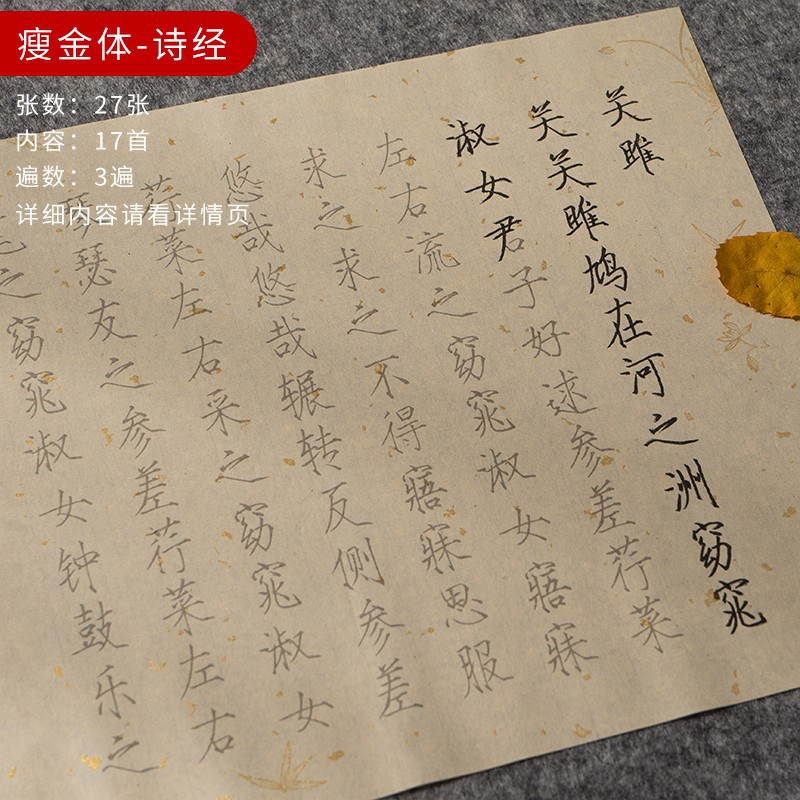 瘦金体-诗经
张数：27张
内容：17首
遍数：3遍
详细内容请看详情页
关雎
关关雎鸠在河之洲窈窕
淑女君子好逑参差荇菜
左右流之窈窕淑女寤寐
求之求之不得寤寐思服
悠哉悠哉辗转反侧参差
荇菜左右采之窈窕淑女
琴瑟友之参差荇菜左右
之窈窕淑女钟鼓乐之